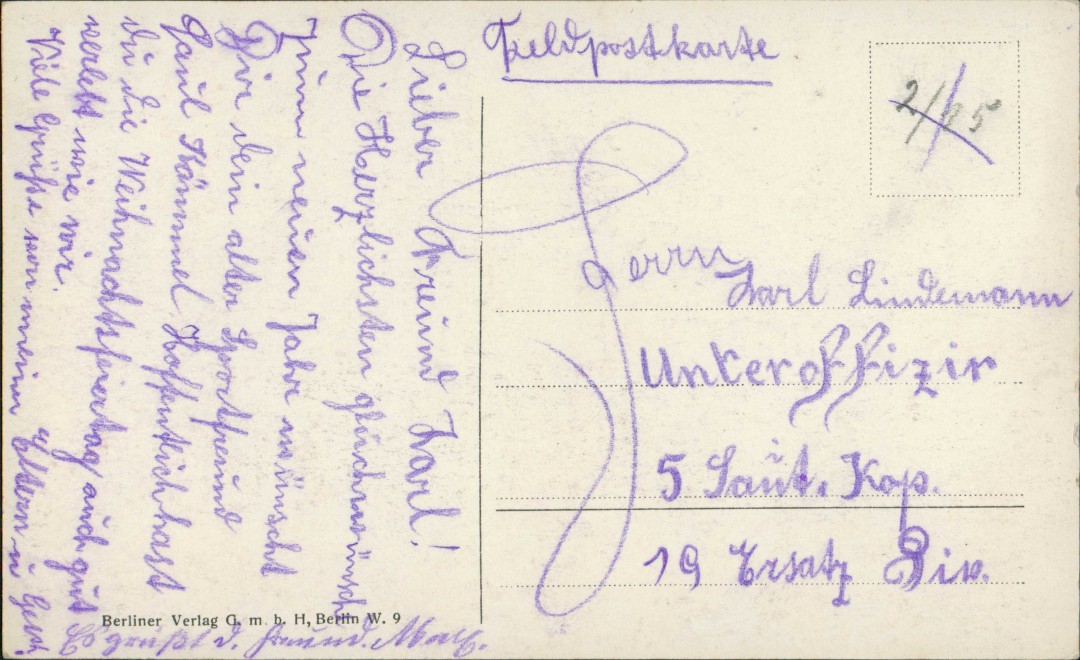 Feldpostkarte
2/1 15
Lieber Freund Karl!
Die Herzlichsten glückwünsche
zum neuen Jahre wünscht
Dir dein alter Sportfreund
Paul Kömmel Hoffentlich hast
du die Weihnachtsfeiertag auch gut
verlebt wie wir.
Viele Grüße von meinn Eltern u Gesch.
Es grüßt d. Freund.
Herrn
Karl Lindemann
Unteroffizir
5 Sanit. Kop.
19 Ersatz Div.
Berliner Verlag G. m. b. H, Berlin W. 9